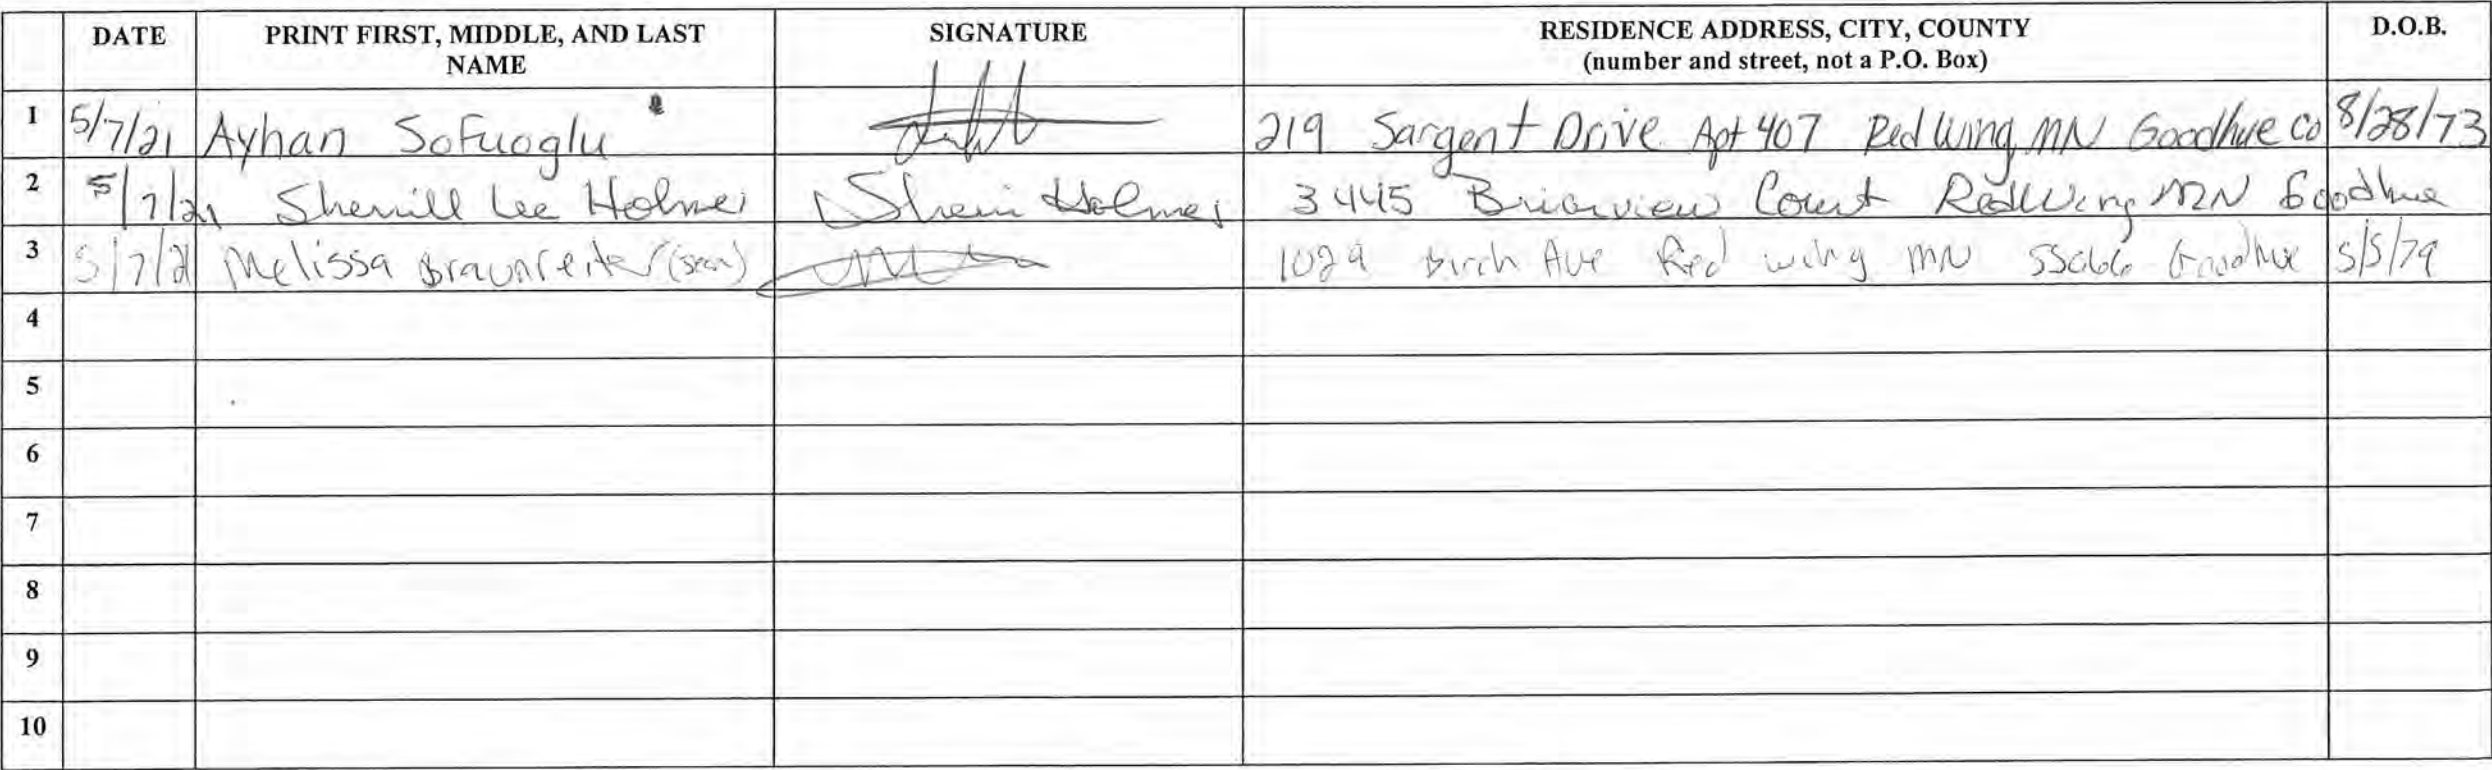 DATE PRINT FIRST, MIDDLE, AND LAST NAME SIGNATURE RESIDENCE ADDRESS, CITY, COUNTY (number and street, not a P.O. Box) D.O.B.
1 5/7/21 Ayhan Sofuoglu 219 Sargent Drive Apt 407 Red Wing, MN Goodhue Co 8/28/73
2 5/7/21 Sherrill Lee Holmes Sherri Holmes 3445 Briarview Court Red Wing MN Goodhue
3 5/7/21 Melissa Braunreiter 1029 Birch Ave Red wing MN 55066 Goodhue 5/5/79
4
5
6
7
8
9
10